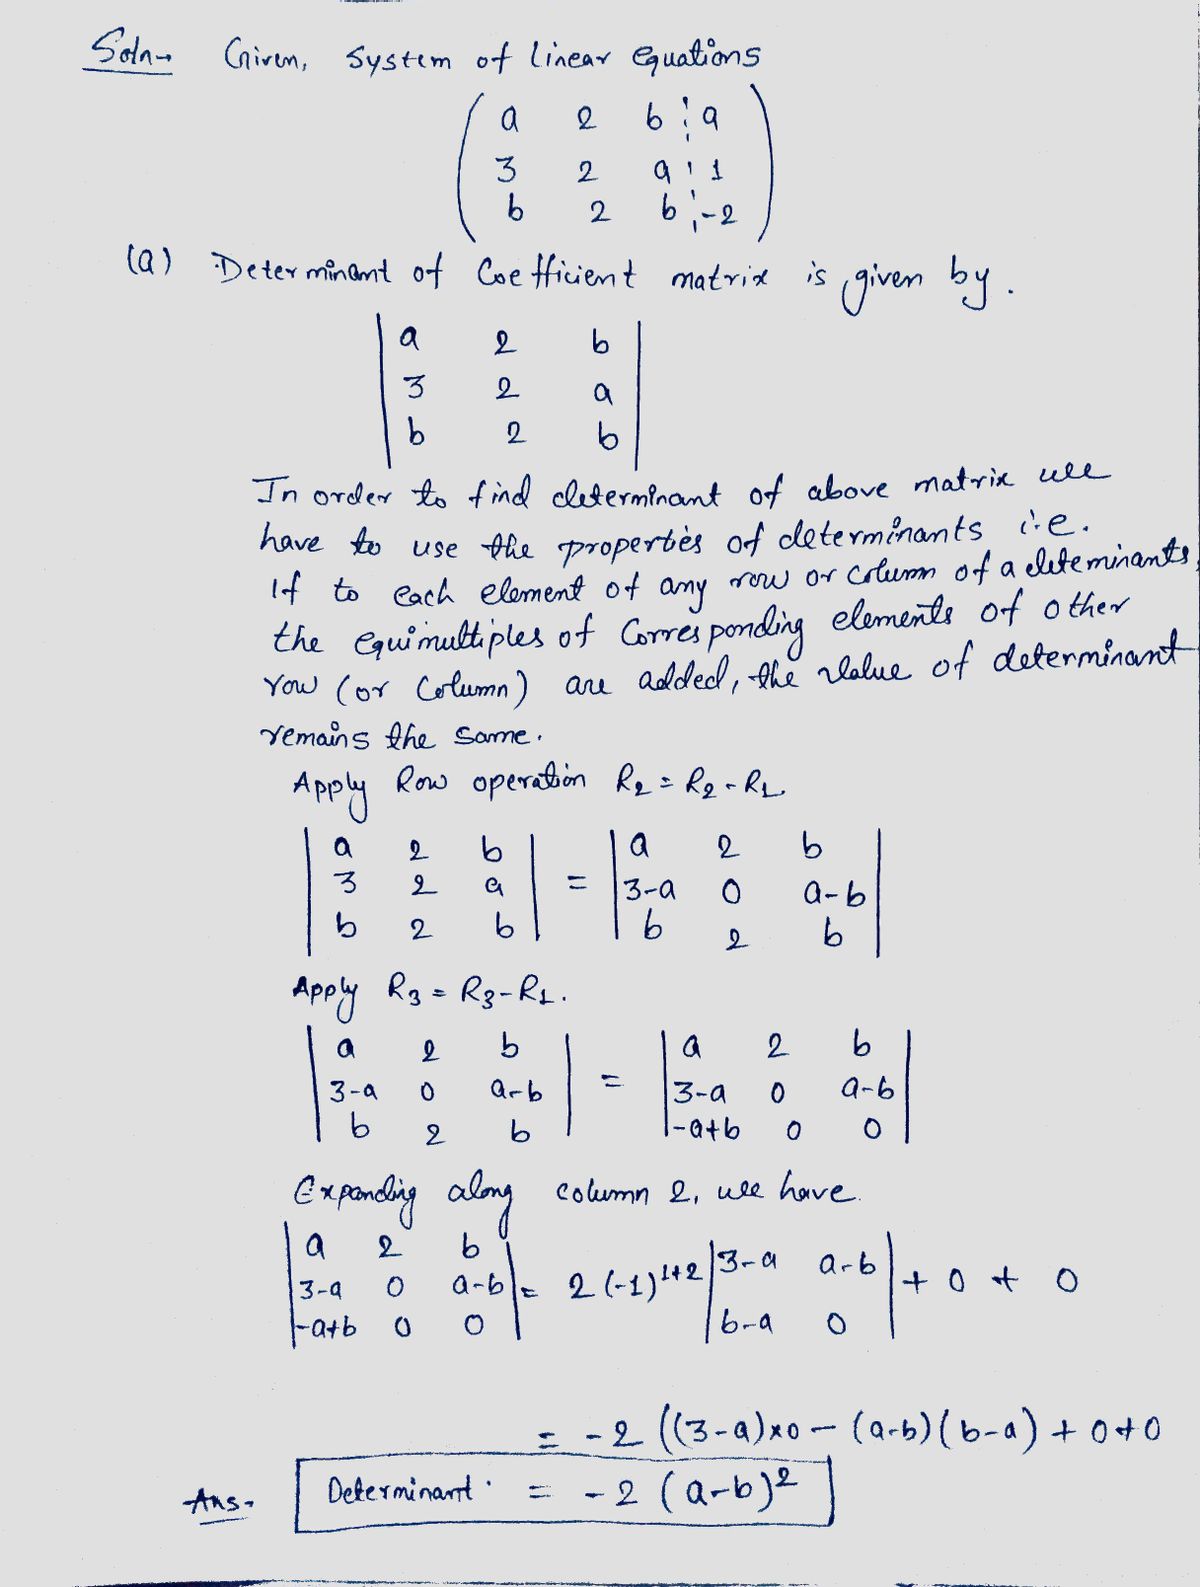 Soln→ Given, System of linear equations
a 2 b ¦ a
3 2 a ¦ 1
b 2 b ¦ -2
(a) Determinant of Coefficient matrix is given by.
a 2 b
3 2 a
b 2 b
In order to find determinant of above matrix we
have to use the properties of determinants i.e.
If to each element of any row or column of a deteminants,
the equimultiples of Corresponding elements of other
row (or Column) are added, the value of determinant
remains the same.
Apply Row operation R2 = R2 - R1.
|a 2 b| |a 2 b|
|3 2 a| = |3-a 0 a-b|
|b 2 b| |b 2 b|
Apply R3 = R3 - R1.
|a 2 b| |a 2 b|
|3-a 0 a-b| = |3-a 0 a-b|
|b 2 b| |-a+b 0 0|
Expanding along column 2, we have.
|a 2 b|
|3-a 0 a-b| = 2 (-1)^1+2 |3-a a-b| + 0 + 0
|-a+b 0 0| |b-a 0|
= -2 ((3-a)×0 - (a-b)(b-a) + 0+0
Ans- Determinant. = -2 (a-b)²